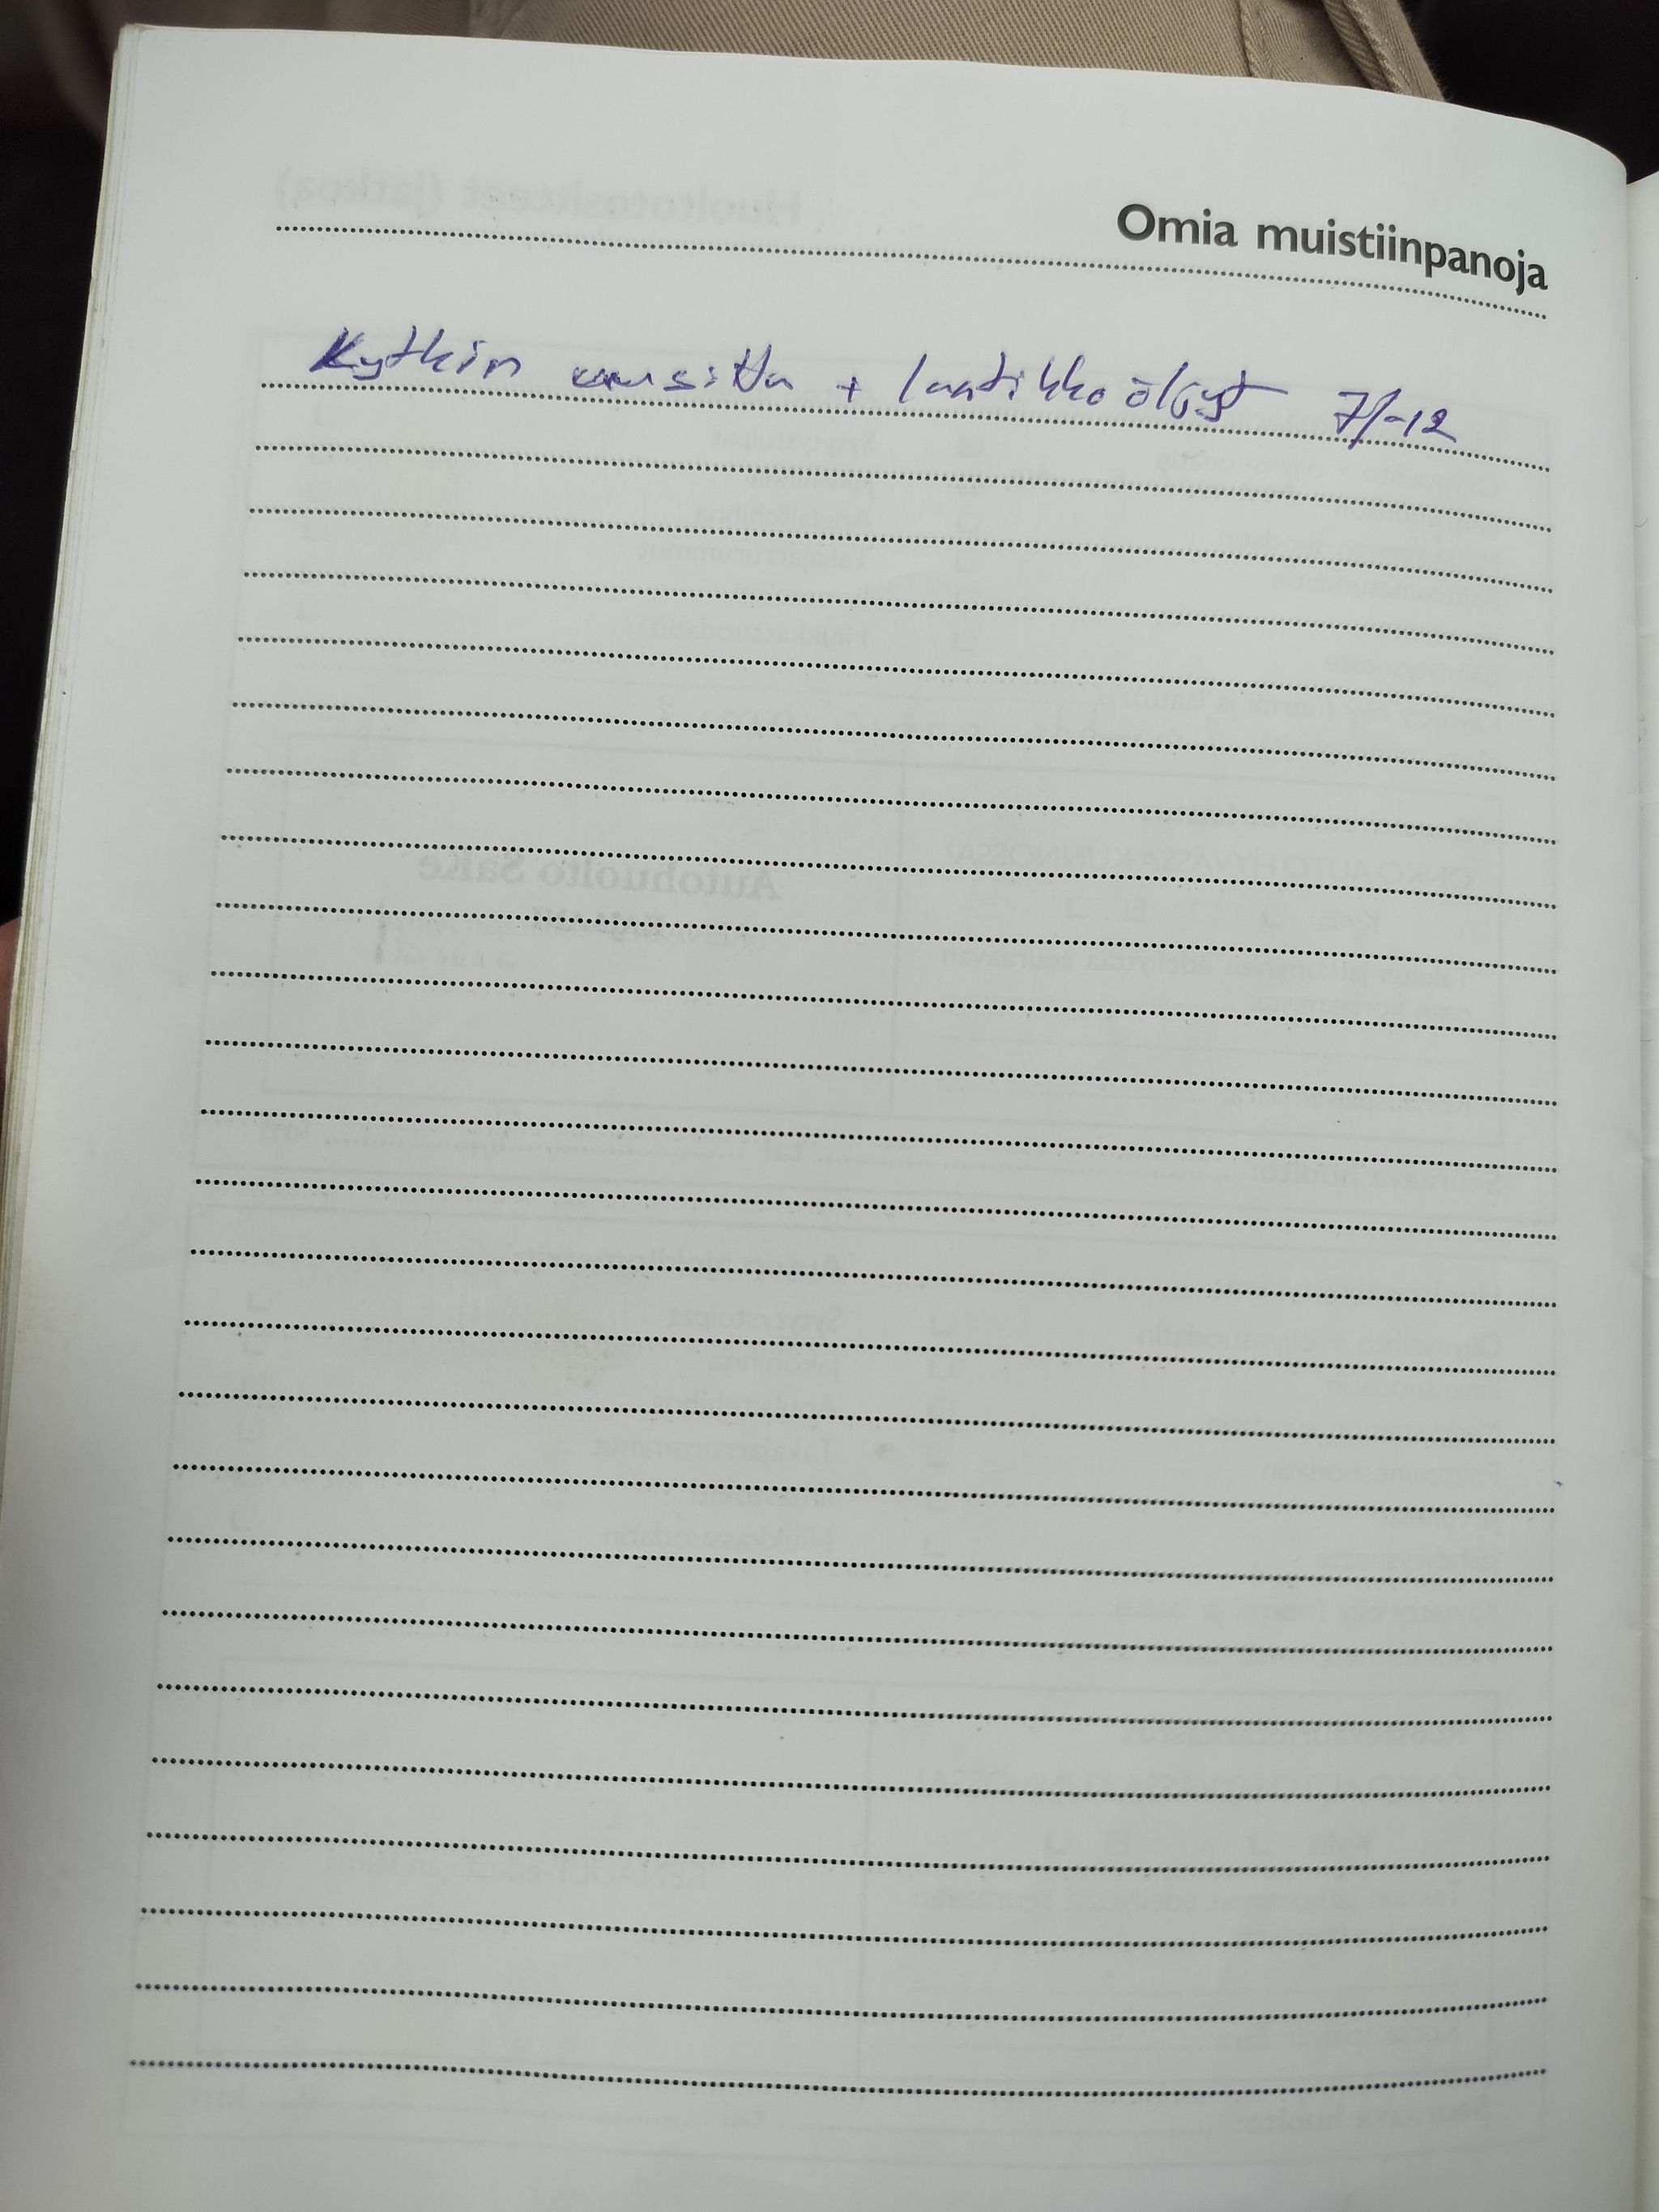 Omia muistiinpanoja
Kytkin uusittu + laatikkoöljyt 7/-12